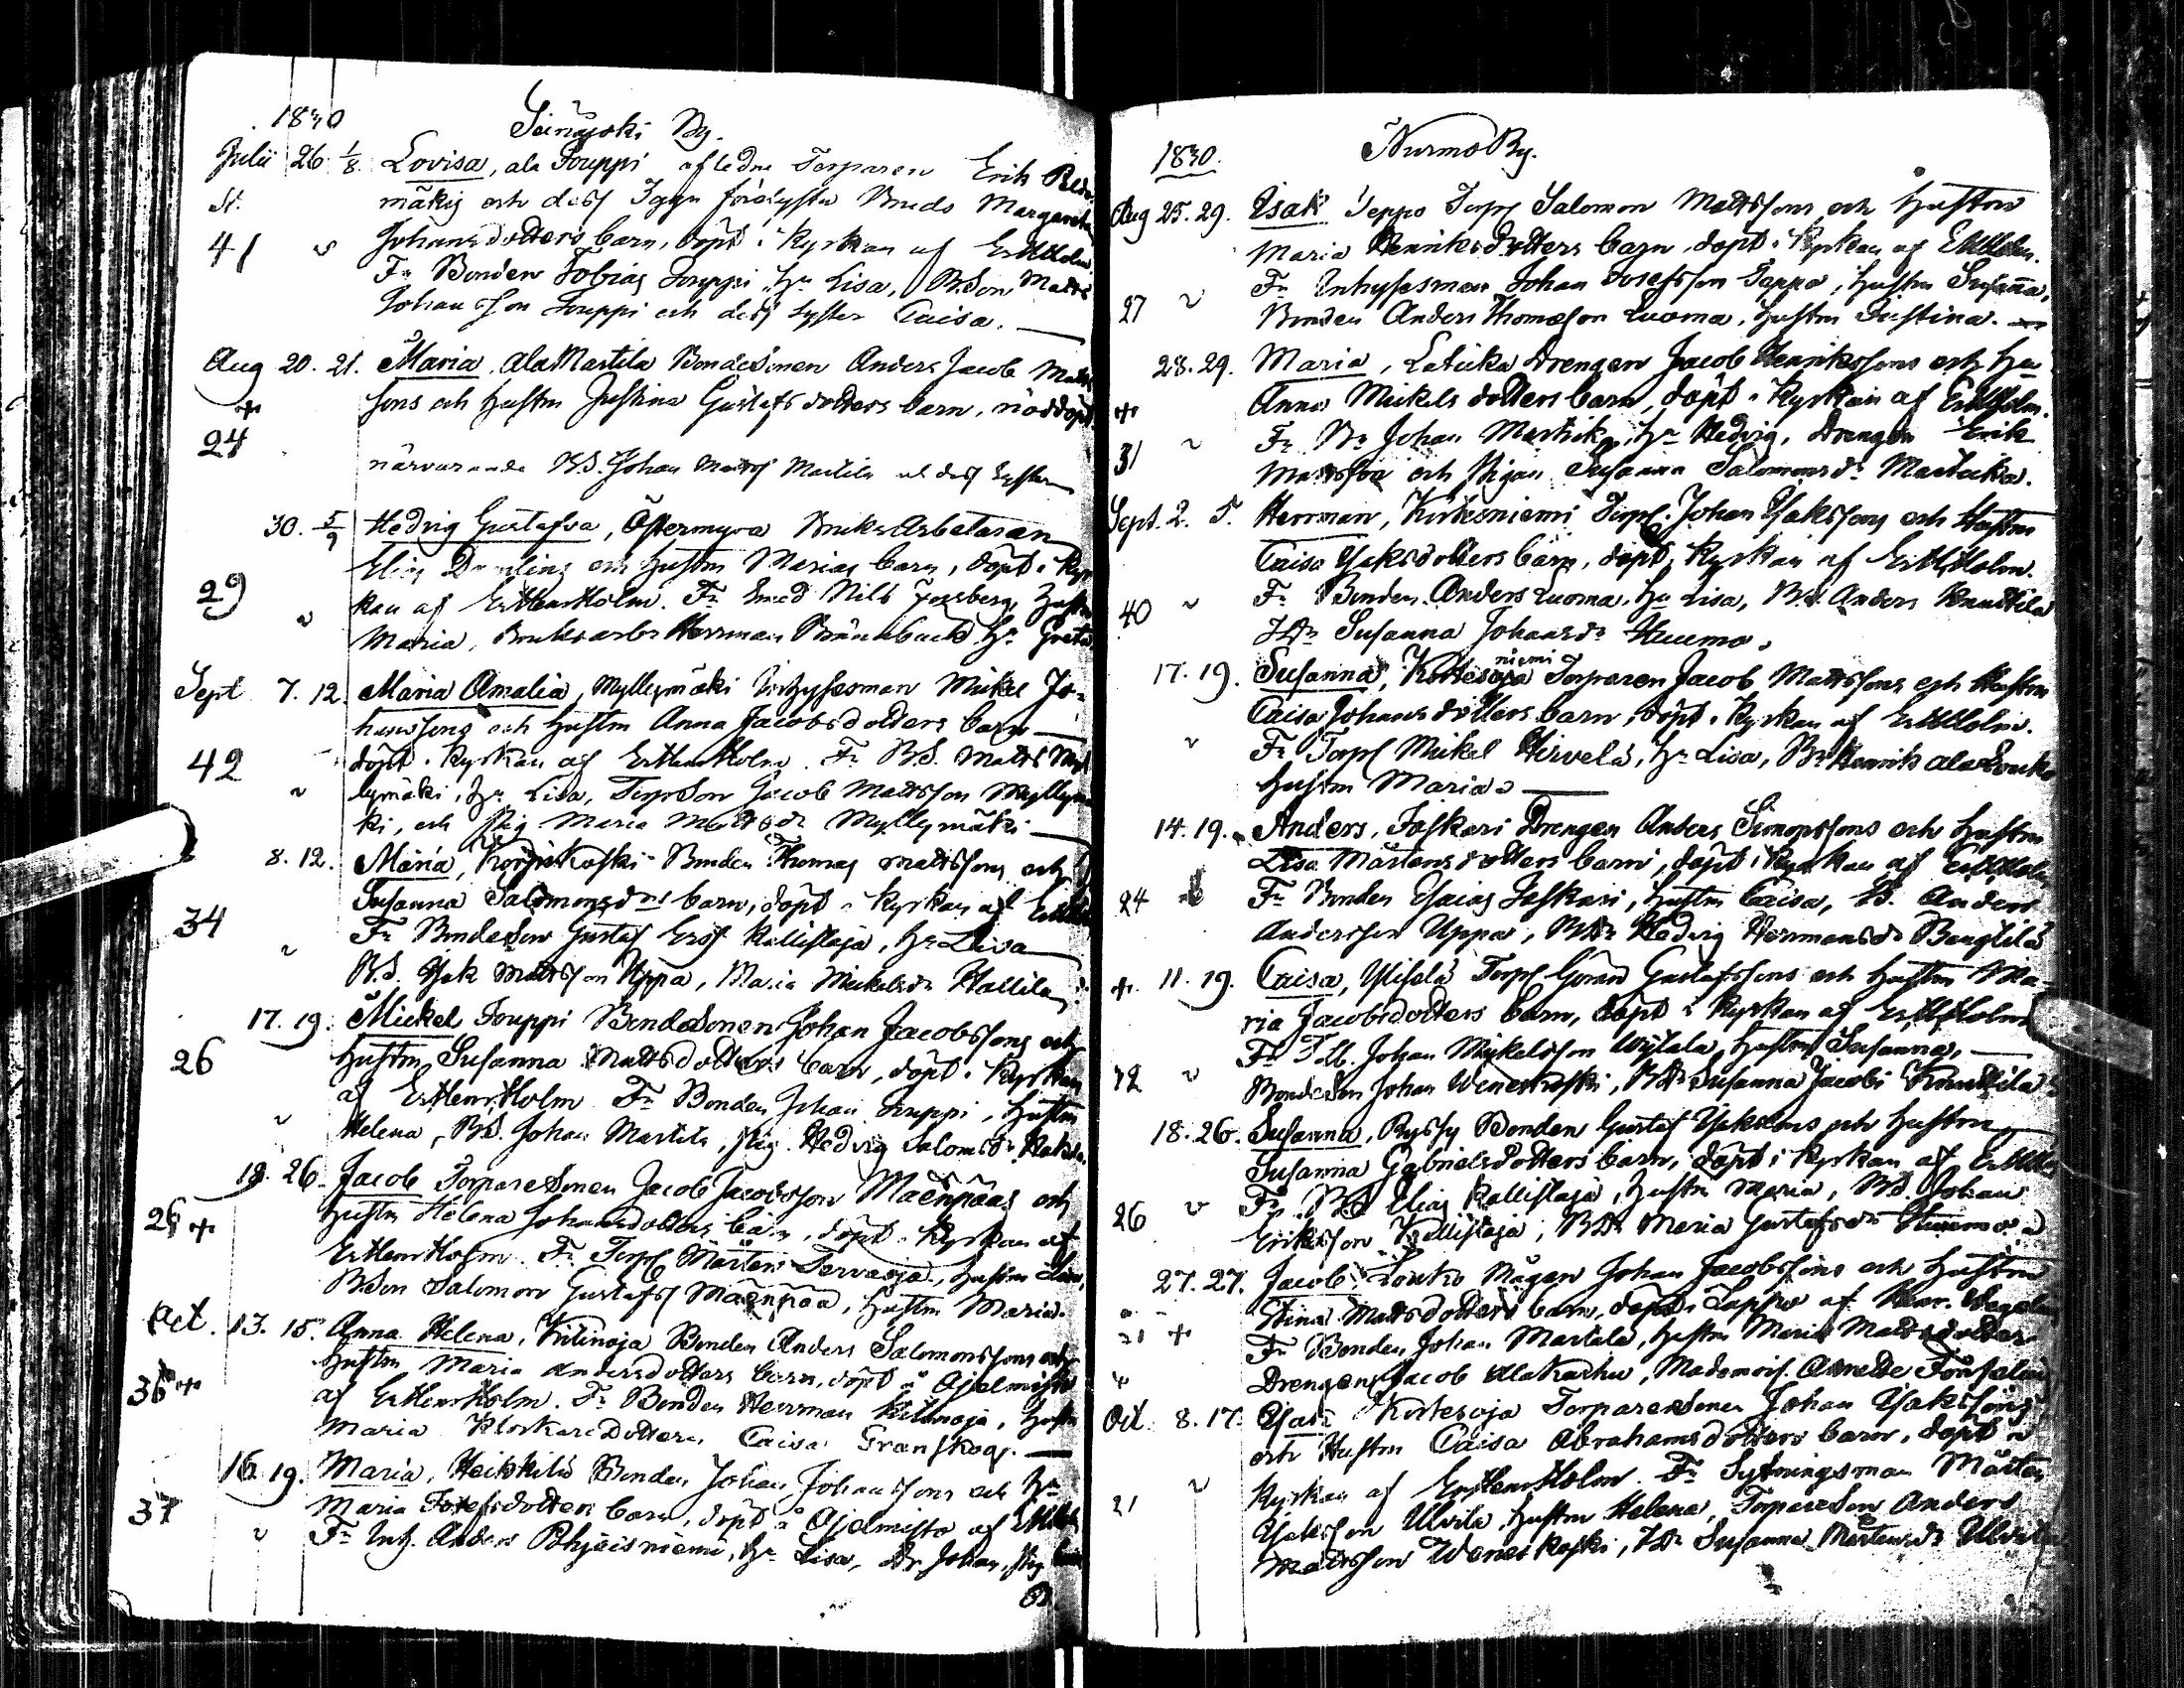 1830 Seinäjoki By.
Julii 26 1/8 Lovisa, ala Jouppi afledne Torparen Erik
mäkis och dess Igen förelysta Bruds Margaretha
41 Johansdotters barn, döpt i Kyrkan af ErHHolm
Fr Bonden Tobias Jouppi, Hu Lisa, B.Son Matts
Johansson Jouppi och dess Syster Caisa.
Aug 20. 21. Maria, ala Martila BondeSonen Anders Jacob Matts
sons och Hustrn Justina Gustafsdotters barn, nöddöpt
24
närvarande B.S. Johan Matts Martila och dess Syster
30. 5/9 Hedvig Gustafva, Östermyra Bruks Arbetaren
Elias och Hustrn Marias barn, döpt i Kyr
29 kan af ErHenrHolm. Fr Smed Nils Forsberg, Hustrn
Maria, Bruksarb. Herrman Brännback Hu Greta
Sept 7. 12. Maria Amalia, Myllymäki Inhysesman Mickel Jo-
hanssons och Hustrn Anna Jacobsdotters barn
42 döpt i Kyrkan af ErHenrHolm. Fr B.S. Matts Myl
lymäki, Hu Lisa, TorpSon Jacob Mattsson Myllymä
ki, och Pig. Maria Mattsdr Myllymäki
8. 12. Maria, Kärjenkoski Bonden Thomas Mattssons och
Susanna Salomonsdrs barn, döpt i Kyrkan af ErHHolm
34 Fr BondeSon Gustaf Ersf. Kallistaja, Hu Lisa
B.S. Isak Mattsson Uppa, Maria Mickelsdr Hallila
17. 19. Mickel Jouppi BondeSonen Johan Jacobssons och
26 Hustrn Susanna Mattsdotters barn, döpt i Kyrkan
af ErHenrHolm Fr Bonden Johan Jouppi, Hustrn
Helena, BS. Johan Martila, Pig. Hedvig Salomsdr
19. 26. Jacob TorpareSonen Jacob Jacobsson Mäenpääs och
26 Hustrn Helena Johansdotters barn, döpt i Kyrkan af
ErHenrHolm. Fr Torp. Mårten Tervasoja, Hustrn Lisa,
B.Son Salomon Gustafss Mäenpää, Hustrn Maria.
Oct. 13. 18. Anna Helena, Kitinoja Bonden Anders Salomonssons och
Hustrn Maria Andersdotters barn, döpt å Ojelmisto
36 af ErHenrHolm. Fr Bonden Herrman Kitinoja, Hustrn
Maria KlockareDottern Caisa Granskog.
16. 19. Maria, Heikkilä Bonden Johan Johanssons och Hu
37 Maria Josefsdotters barn, döpt å Ojelmisto af ErHHolm
Fr Inh. Anders Pohjoisniemi, Hu Lisa, Dr Johan, Pig
1830. Nurmo By.
Aug 25. 29. Isak Seppo Torp. Salomon Mattssons och Hustrus
Maria Henriksdotters barn, döpt i Kyrkan af ErHHolm.
27 Fr Inhysesman Johan Josefsson Seppa, Hustrn Susanna,
Bonden Anders Thomasson Luoma, Hustrn Justina.
28. 29. Maria, Latikka Drengen Jacob Henrikssons och Hu
Anna Mickelsdotters barn, döpt i Kyrkan af ErHHolm.
31 Fr Br Johan Martikka, Hu Hedvig, Drengen Erik
Mattsson och Pigan Susanna Salomonsdr Martikka.
Sept. 2. 5. Herrman, Kirkesniemi Torp. Johan Isakssons och Hustrn
Caisa Isaksdotters barn, döpt i Kyrkan af ErHHolm.
40 Fr Bonden Anders Luoma, Hu Lisa, B.S. Anders Knuttila
TDr Susanna Johansdr Huumo.
17. 19. Susanna, Kortesniemi Torparen Jacob Mattssons och Hustrn
Caisa Johansdotters barn, döpt i Kyrkan af ErHHolm.
Fr Torp. Mickel Hirvelä, Hu Lisa, Br Henrik ala Louko
Hustrn Maria
14. 19. Anders, Jaskari Drengen Anders Simonssons och Hustrn
Lisa Mårtensdotters barn, döpt i Kyrkan af ErHHolm
24 Fr Bonden Esaias Jaskari, Hustrn Caisa, B. Anders
Andersson Uppa, BDr Hedvig Hermansdr Bengtila
11. 19. Caisa, Ylisela Torp. Göran Gustafssons och Hustrn Ma-
ria Jacobsdotters barn, döpt i Kyrkan af ErHHolm
Fr Johan Mickelsson Wylala, Hustrn Susanna,
BondeSon Johan Weneskoski, BDr Susanna Jacobi Knuttila
18. 26. Susanna, Ryssy Bonden Gustaf Isakssons och Hustrn
Susanna Gabrielsdotters barn, döpt i Kyrkan af ErHH
26 Fr BS Elias Kallistaja, Hustrn Maria, BS. Johan
Eriksson Kallistaja, BDr Maria Gustafsdr Huumo
27. 27. Jacob Louko Mågen Johan Jacobssons och Hustrn
Stina Mattsdotters barn, döpt i Lappo af
Fr Bonden Johan Martila, Hustrn Maria Mattsdotter
Drengen Jacob Alakarhu, Mademois. Annette Forselius
Oct. 8. 17. Isak Kortesoja TorpareSonen Johan Isakssons
och Hustrn Caisa Abrahamsdotters barn, döpt i
Kyrkan af ErHenrHolm. Fr Sytningsman Mårten
21 Isaksson Ulvila, Hustrn Helena, TorpareSon Anders
Mattsson Weneskoski, TDr Susanna Mårtensdr Ulvila